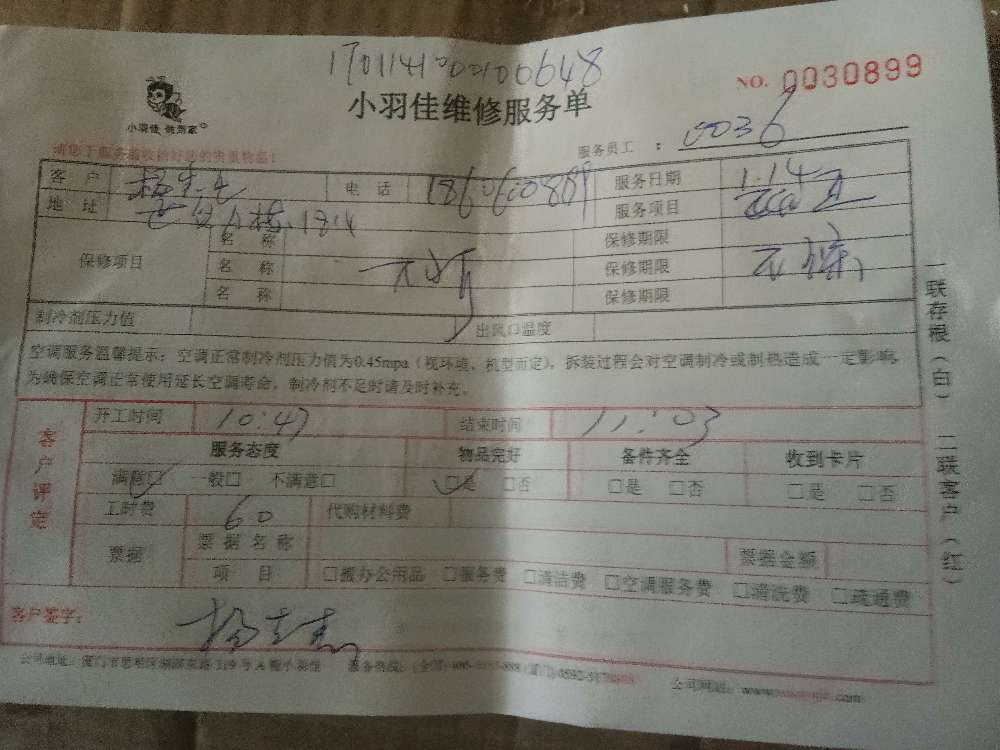 170114100100648
NO. 0030899
小羽佳维修服务单
小羽佳 健翔家
服务员工 : 0036
请您于服务前收拾好您的贵重物品!
客户 杨先生 电话 服务日期 1.14
地址 服务项目
保修项目 名称 保修期限
名称 保修期限
名称 保修期限
制冷剂压力值 出风口温度
空调服务温馨提示:空调正常制冷剂压力值为0.45mpa(视环境、机型而定),拆装过程会对空调制冷或制热造成一定影响,
为确保空调正常使用延长空调寿命,制冷剂不足时请及时补充。
客户评定
开工时间 10:47 结束时间 11:03
服务态度 物品完好 备件齐全 收到卡片
满意□ 一般□ 不满意□ □是 □否 □是 □否 □是 □否
工时费 60 代购材料费
票据 票据名称 票据金额
项目 □搬办公用品 □服务费 □清洁费 □空调服务费 □清洗费 □疏通费
客户签字:
公司网站:
一联存根(白) 二联客户(红)